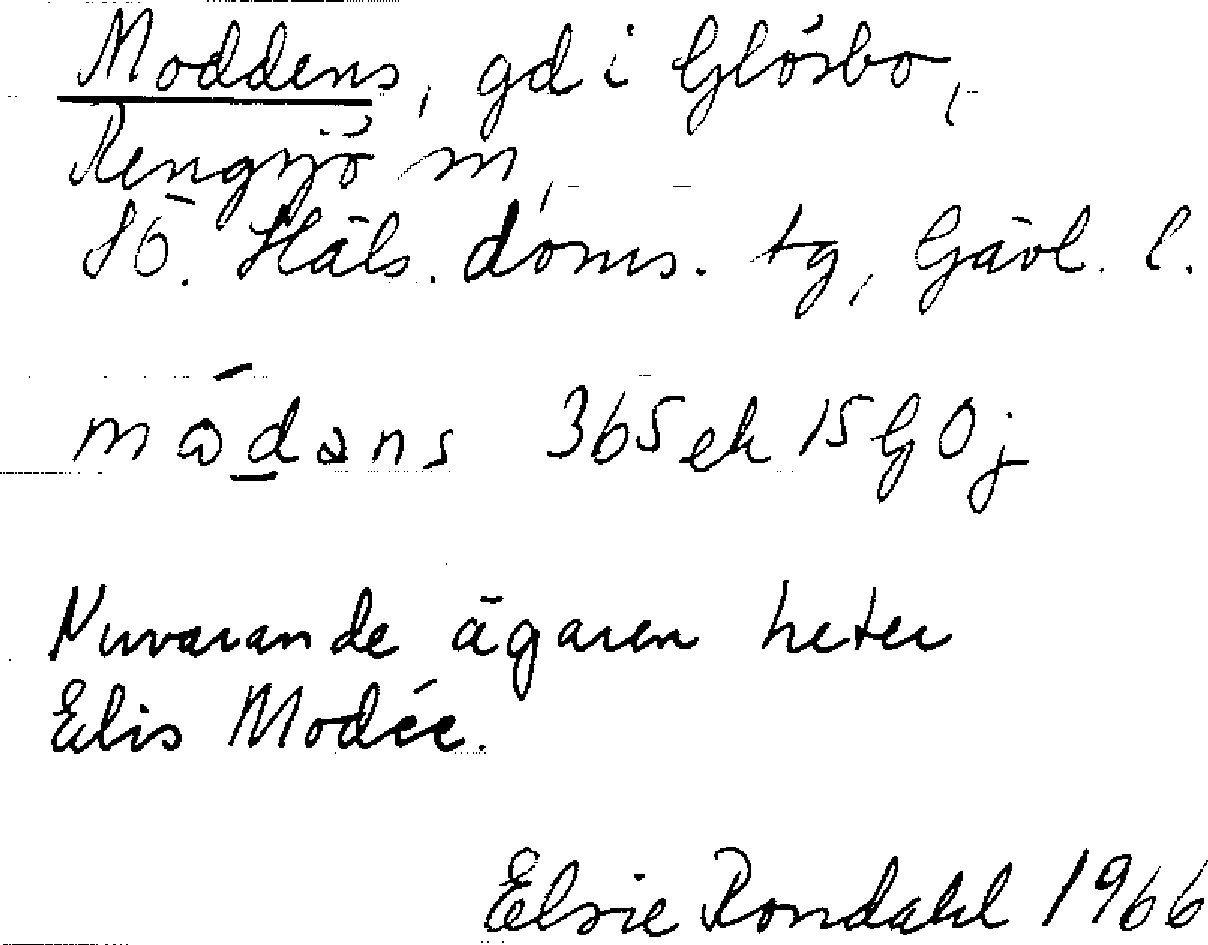 Moddens, gd i Glösbo,
Rengsjö sn,
Sö. Häls. doms. tg, Gävl. l.
365 ek 15 G 0 j
Nuvarande ägaren heter
Elis Modée.
Elsie Rondahl 1966